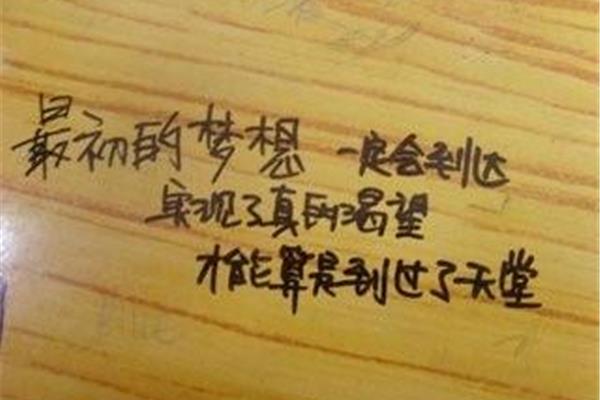 最初的梦想 一定会到达
实现了真的渴望
才能算是到过了天堂